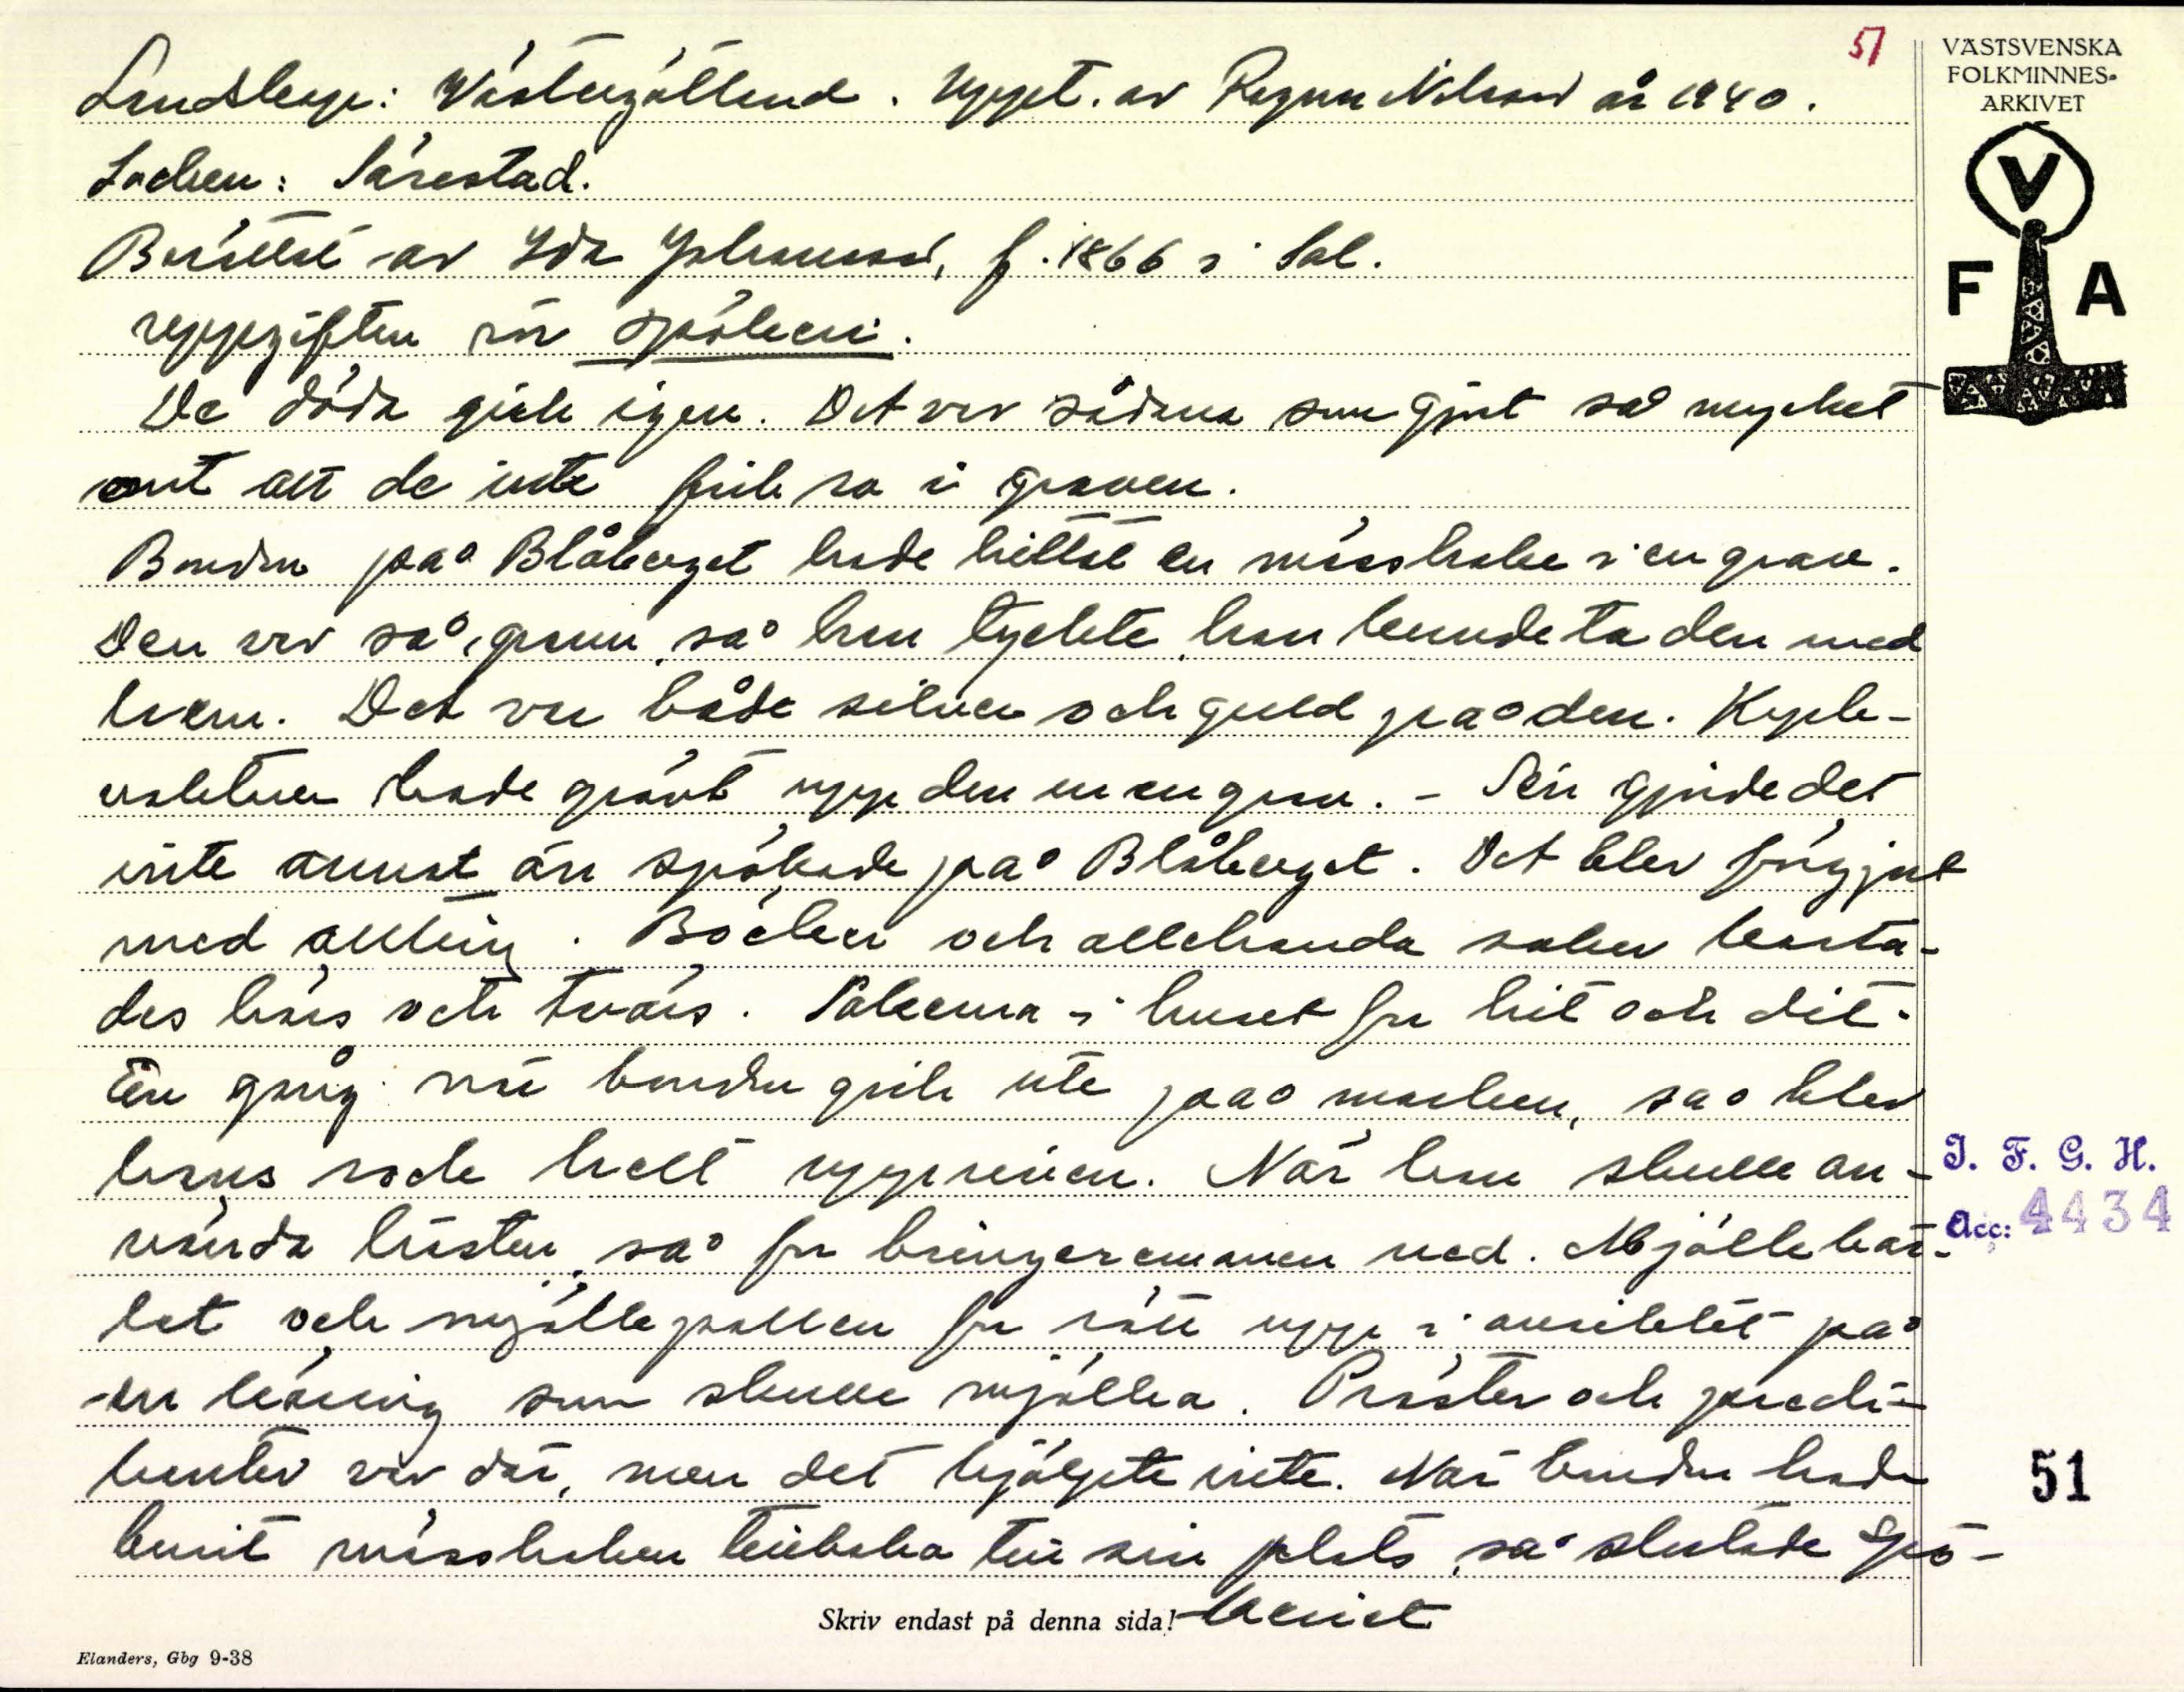 51
VÄSTSVENSKA
FOLKMINNES-
ARKIVET
V
F A
Landskap: Västergötland. Uppt. av Ragnar Nilsson år 1940.
Socken: Särestad.
Berättat av Ida Johansson, f. 1866 i Sal.
uppgiften rör spökeri.
De döda gick igen. Det var sådana som gjort så mycket
ont att de inte fick ro i graven.
Bonden på Blåberget hade hittat en mässhake i en grav.
Den var så grann så han tyckte han kunde ta den med
hem. Det var både silver och guld på den. Kyrk-
vaktaren hade grävt upp den ur en grav. - Sen gjorde det
inte annat än spökade på Blåberget. Det blev förgjort
med allting. Böcker och allehanda saker kasta-
des härs och tvärs. Sakerna i huset for hit och dit.
En gång när bonden gick ute på marken, så blev
hans rock helt uppriven. När han skulle an-
vända hästen, så for bringeremmen ned. Mjölkkär-
let och mjölkpallen for rätt upp i ansiktet på
en käring som skulle mjölka. Präster och predi-
kanter var där, men det hjälpte inte. När bonden hade
burit mässhaken tillbaka till sin plats, så slutade spö-
keriet
I. F. G. H.
Acc: 4434
51
Skriv endast på denna sida!
Elanders, Gbg 9-38